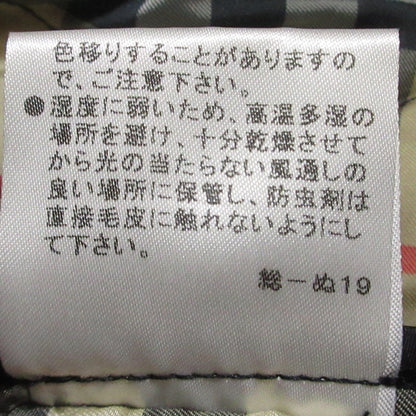 色移りすることがありますの
で、ご注意下さい。
●湿度に弱いため、高温多湿の
場所を避け、十分乾燥させて
から光の当たらない風通しの
良い場所に保管し、防虫剤は
直接毛皮に触れないようにし
て下さい。
総ーぬ19